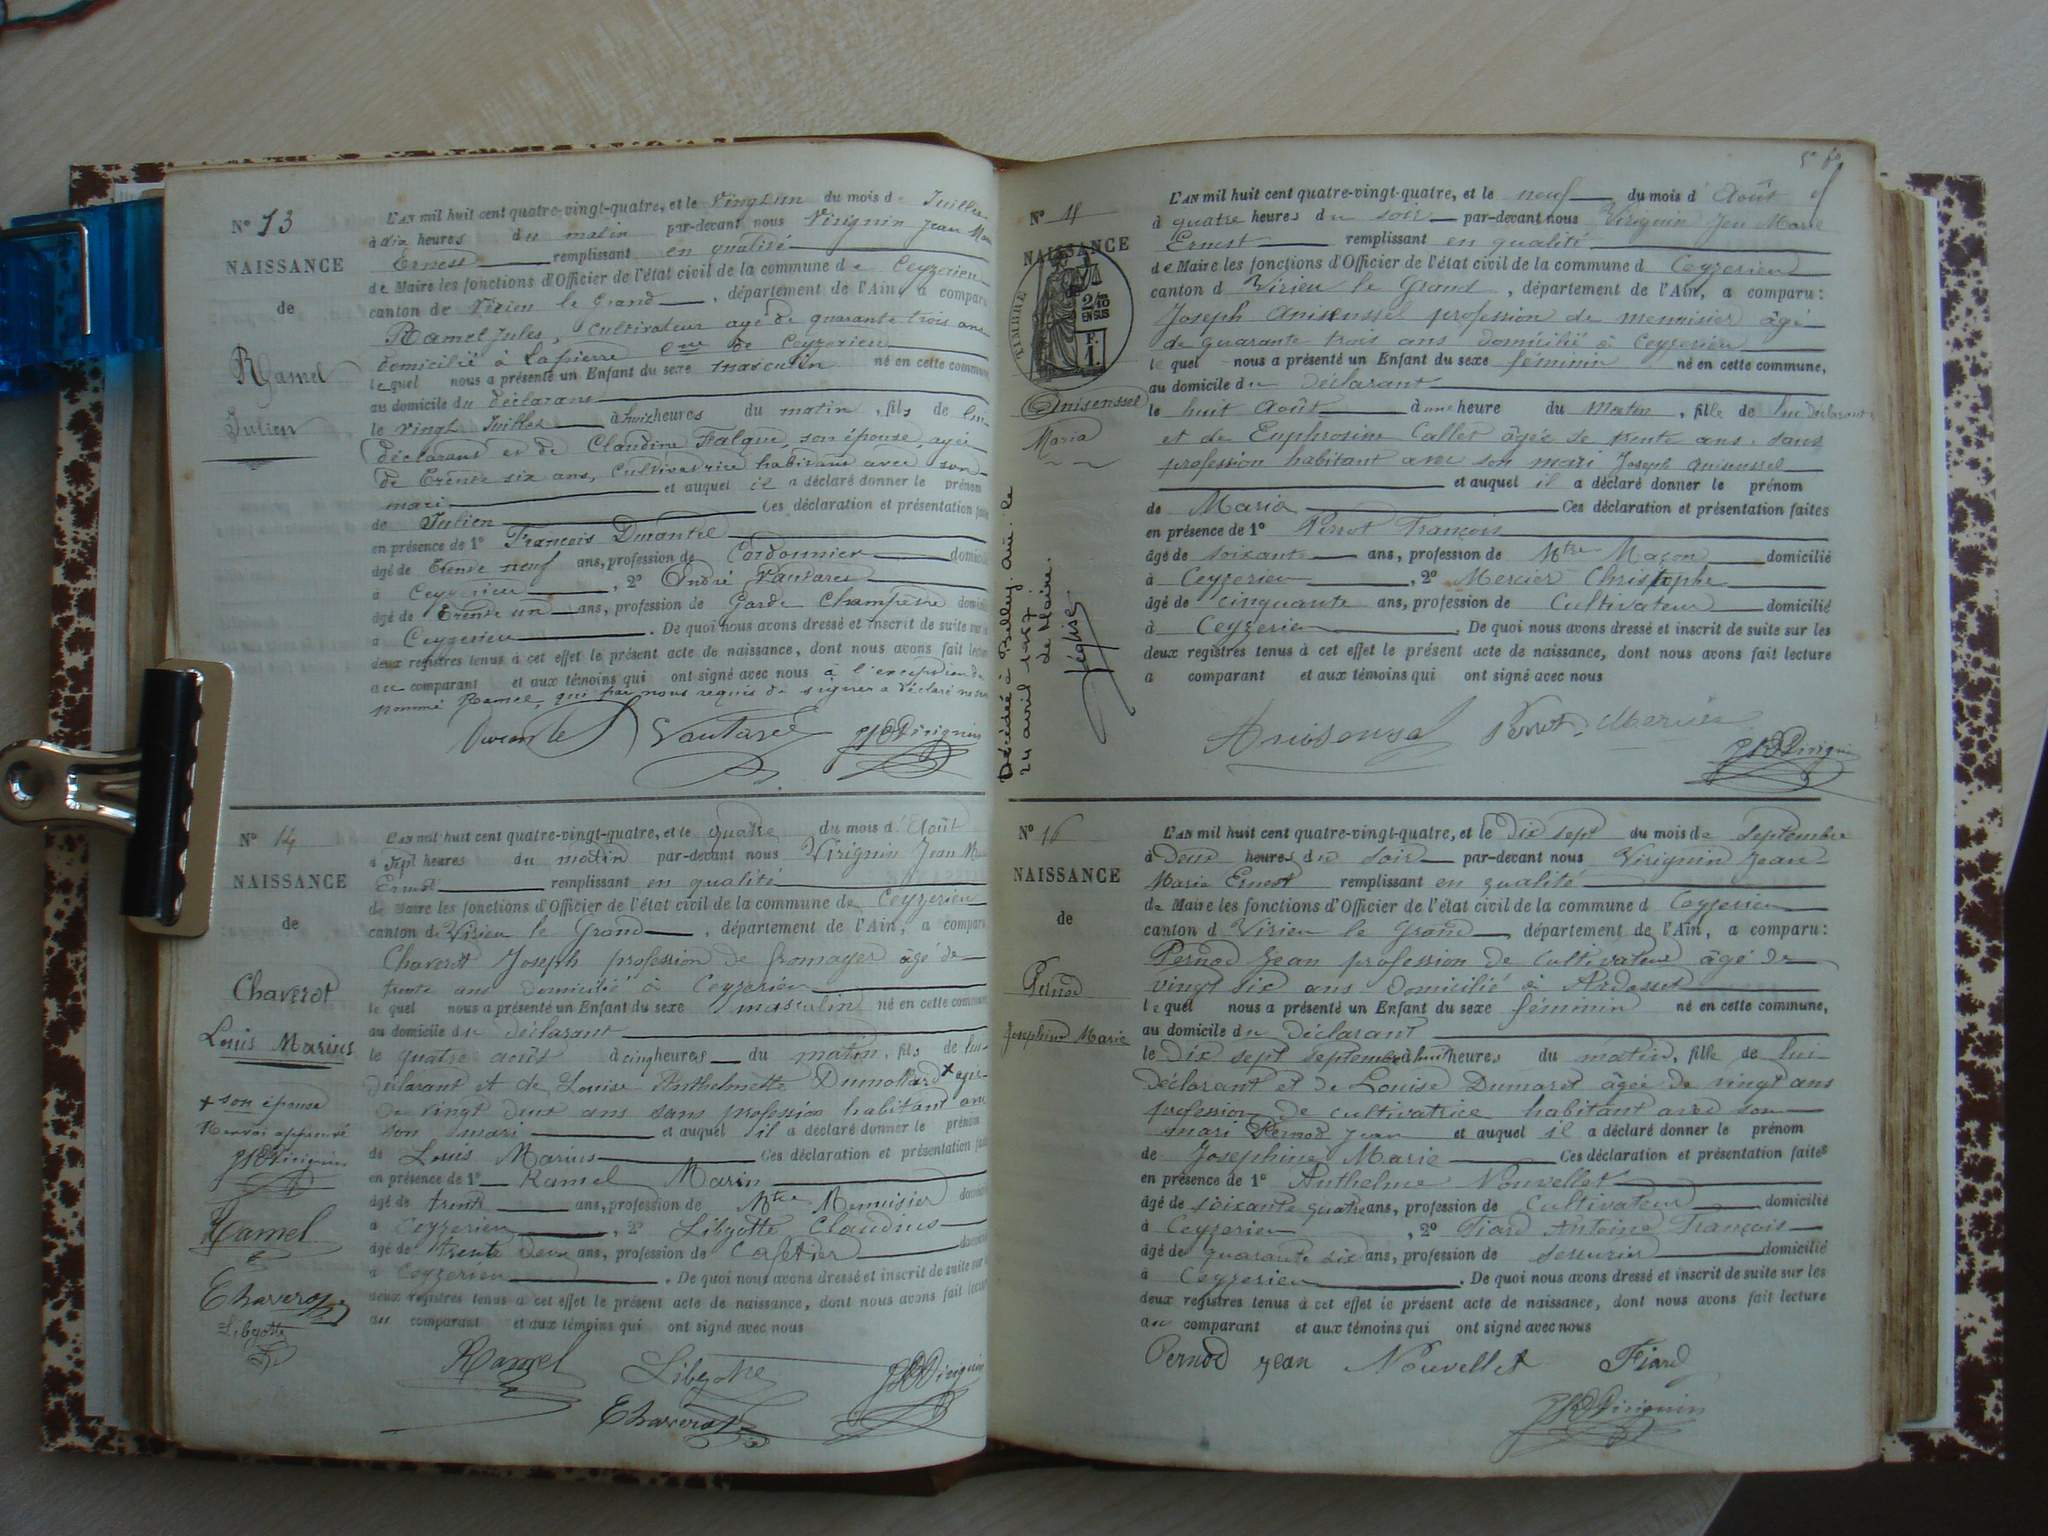 N° 13
NAISSANCE
de
Ramel
Julien
L'AN mil huit cent quatre-vingt-quatre, et le vingt un du mois de Juillet
à dix heures du matin par-devant nous Virignin Jean Marie
Ernest remplissant en qualité
de Maire les fonctions d'Officier de l'état civil de la commune de Ceyzerieu
canton de Virieu le Grand, département de l'Ain, a comparu
Ramel Jules, cultivateur agé de quarante trois ans
domicilié à Lapierre Cne de Ceyzerieu
lequel nous a présenté un Enfant du sexe masculin né en cette commune,
au domicile du déclarant
le vingt Juillet à huit heures du matin, fils de lui
déclarant et de Claudine Falque, son épouse, agée
de trente six ans, cultivatrice habitant avec son
mari et auquel il a déclaré donner le prénom
de Julien Ces déclaration et présentation faites
en présence de 1° François Durantel
âgé de trente neuf ans, profession de Cordonnier domicilié
à Ceyzerieu, 2° André Vautaret
âgé de trente un ans, profession de Garde Champêtre domicilié
à Ceyzerieu. De quoi nous avons dressé et inscrit de suite sur les
deux registres tenus à cet effet le présent acte de naissance, dont nous avons fait lecture
au comparant et aux témoins qui ont signé avec nous à l'exception du
nommé Ramel, qui par nous requis de signer a déclaré ne
Vautaret JMEVirignin
N° 14
NAISSANCE
de
Chaverot
Louis Marius
+ son épouse
Renvoi approuvé
JMEVirignin
Ramel
Chaverot
Libgotte
L'AN mil huit cent quatre-vingt-quatre, et le quatre du mois d'Août
à sept heures du matin par-devant nous Virignin Jean Marie
Ernest remplissant en qualité
de Maire les fonctions d'Officier de l'état civil de la commune de Ceyzerieu
canton de Virieu le Grand, département de l'Ain, a comparu
Chaverot Joseph profession de fromager âgé de
trente ans domicilié à Ceyzerieu
lequel nous a présenté un Enfant du sexe masculin né en cette commune
au domicile du déclarant
le quatre août à cinq heures du matin, fils de lui
déclarant et de Louise Anthelmette Dumollard + agée
de vingt deux ans sans profession habitant avec
son mari et auquel il a déclaré donner le prénom
de Louis Marius Ces déclaration et présentation faites
en présence de 1° Ramel Marin
âgé de trente ans, profession de Mtre Menuisier domicilié
à Ceyzerieu, 2° Libgotte Claudius
âgé de trente deux ans, profession de Cafetier domicilié
à Ceyzerieu. De quoi nous avons dressé et inscrit de suite sur les
deux registres tenus à cet effet le présent acte de naissance, dont nous avons fait lecture
au comparant et aux témoins qui ont signé avec nous
Ramel Libgotte JMEVirignin
Chaverot
N° 15
NAISSANCE
TIMBRE
2/10
EN SUS
F.
1.
Anisensel
Maria
Décédée à Belley. Ain. le
24 avril 1957.
de Maire.
L'AN mil huit cent quatre-vingt-quatre, et le neuf du mois d'Août
à quatre heures du soir par-devant nous Virignin Jean Marie
Ernest remplissant en qualité
de Maire les fonctions d'Officier de l'état civil de la commune de Ceyzerieu
canton d Virieu le Grand, département de l'Ain, a comparu:
Joseph Anisensel profession de menuisier âgé
de quarante trois ans domicilié à Ceyzerieu
lequel nous a présenté un Enfant du sexe féminin né en cette commune,
au domicile du déclarant
le huit Août à une heure du matin, fille de lui déclarant
et de Euphrosine Callet âgée de trente ans, sans
profession habitant avec son mari Joseph Anisensel
et auquel il a déclaré donner le prénom
de Maria Ces déclaration et présentation faites
en présence de 1° Perrot François
âgé de soixante ans, profession de Mtre Maçon domicilié
à Ceyzerieu, 2° Mercier Christophe
âgé de cinquante ans, profession de Cultivateur domicilié
à Ceyzerieu. De quoi nous avons dressé et inscrit de suite sur les
deux registres tenus à cet effet le présent acte de naissance, dont nous avons fait lecture
a comparant et aux témoins qui ont signé avec nous
Anisensel Perrot Mercier
JMEVirignin
N° 16
NAISSANCE
de
Pernod
Joséphine Marie
L'AN mil huit cent quatre-vingt-quatre, et le dix sept du mois de septembre
à deux heures du soir par-devant nous Virignin Jean
Marie Ernest remplissant en qualité
de Maire les fonctions d'Officier de l'état civil de la commune d Ceyzerieu
canton d Virieu le Grand, département de l'Ain, a comparu:
Pernod Jean profession de cultivateur âgé de
vingt six ans domicilié à Ardosset
lequel nous a présenté un Enfant du sexe féminin né en cette commune,
au domicile du déclarant
le dix sept septembre à huit heures du matin, fille de lui
déclarant et de Louise Dumaret âgée de vingt ans
profession de cultivatrice habitant avec son
mari Pernod Jean et auquel il a déclaré donner le prénom
de Josephine Marie Ces déclaration et présentation faites
en présence de 1° Anthelme Nouvellet
âgé de soixante quatre ans, profession de Cultivateur domicilié
à Ceyzerieu, 2° Fiard Antoine François
âgé de quarante six ans, profession de serrurier domicilié
à Ceyzerieu. De quoi nous avons dressé et inscrit de suite sur les
deux registres tenus à cet effet le présent acte de naissance, dont nous avons fait lecture
au comparant et aux témoins qui ont signé avec nous
Pernod Jean Nouvellet Fiard
JMEVirignin